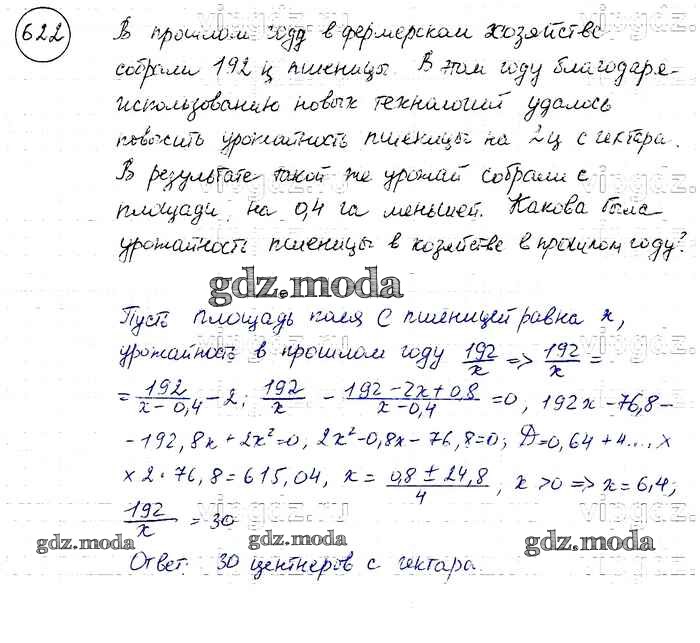 622
В прошлом году в фермерском хозяйстве
собрали 192 ц пшеницы. В этом году благодаря
использованию новых технологий удалось
повысить урожайность пшеницы на 2 ц с гектара.
В результате такой же урожай собрали с
площади на 0,4 га меньшей. Какова была
урожайность пшеницы в хозяйстве в прошлом году?
gdz.moda
Пусть площадь поля с пшеницей равна x,
урожайность в прошлом году 192/x => 192/x =
= 192/(x-0,4) - 2; 192/x - (192-2x+0,8)/(x-0,4) = 0, 192x - 76,8 -
- 192,8x + 2x² = 0, 2x² - 0,8x - 76,8 = 0; D = 0,64 + 4... x
x 2 · 76,8 = 615,04, x = (0,8 ± 24,8)/4, x > 0 => x = 6,4;
192/x = 30
gdz.moda gdz.moda gdz.moda
Ответ. 30 центнеров с гектара.